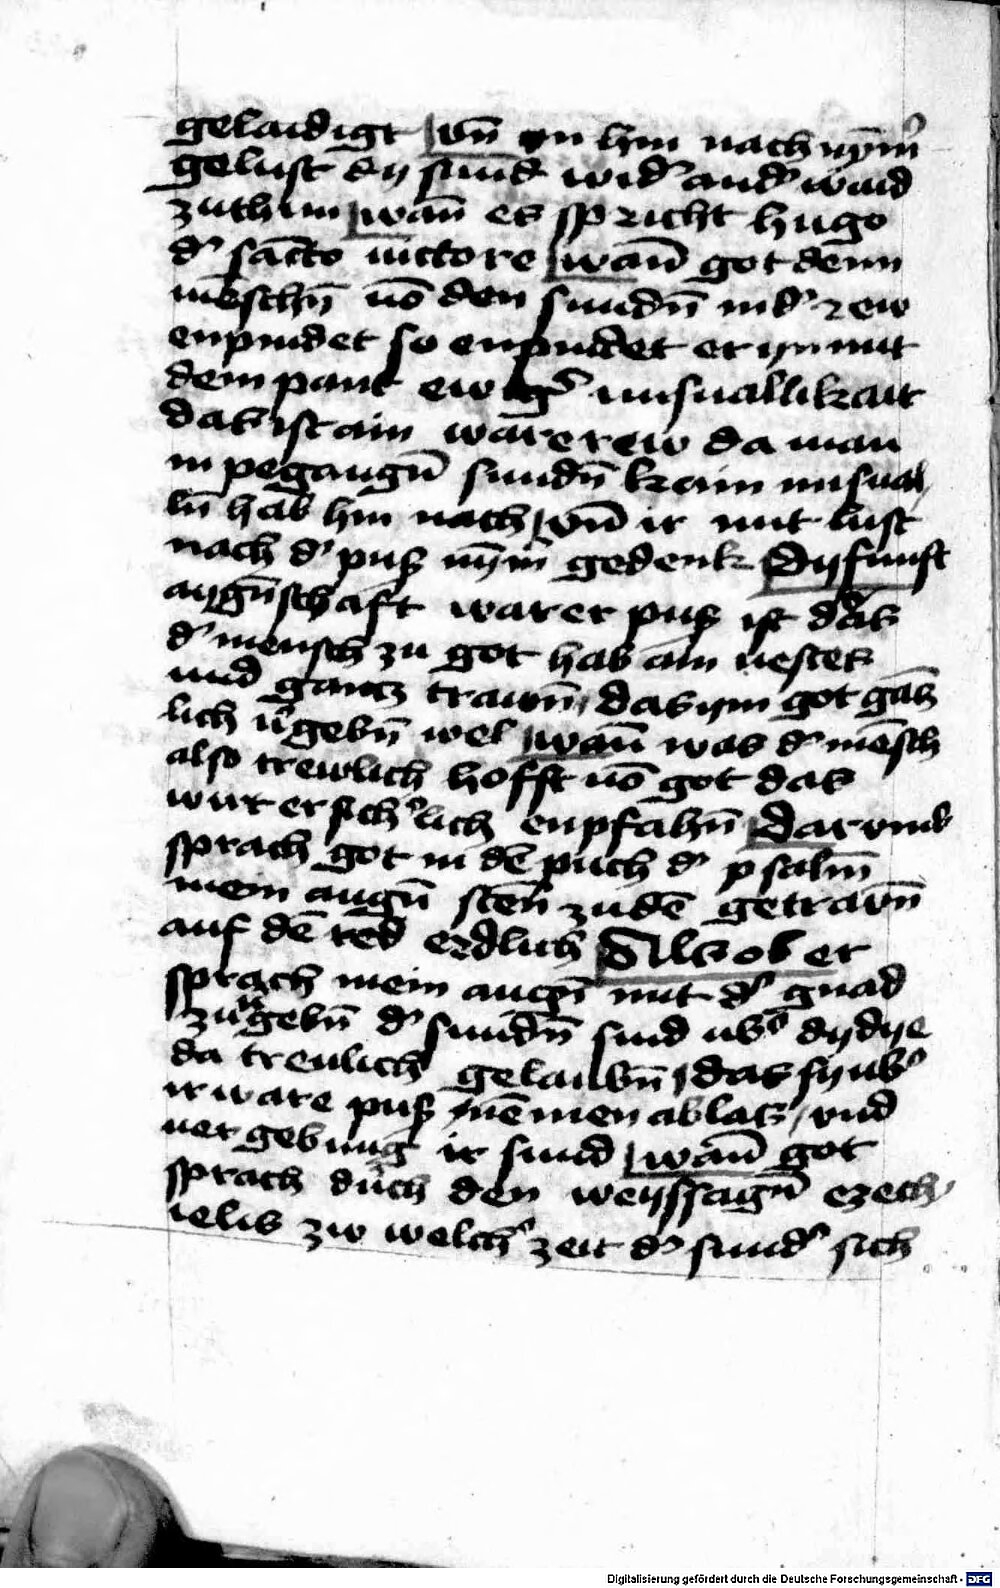 gelaidigt vn̄ yn hin nach nȳm̄ˀ
gelust dij sund widˀ andˀ waid
zuthun wan̄ es spricht hugo
dˀ sācto uictore wan̄ got denn
mēschn̄ uō den sundn̄ in dˀ rew
enpindet so enpindet er yn mit
dem pant ewigˢ missuallikait
das ist ain ware rew da man
in pegangn̄ sundn̄ kain missual
ln̄ hab hin nach vn̄ ir mit lust
nach dˀ puß nȳm̄ gedenk Dij funft
aygn̄schaft warer puß ist das
dˀ mensch zu got hab ain uestes
und gantz trawn̄ das ym got gāz
lich uˀgebn̄ wel wan̄ was dˀ mēsch
also trewlich hofft uō got das
wirt er sichˀlich enpfahn̄ Darvmb
sprach got in dē puch dˀ psalm̄
mein augn̄ sten̄ zu dē getravn̄
auf dē red erdlich Als ob er
sprach mein augn̄ mit dˀ gnad
zuuˀgebn̄ dˀ sundn̄ sind ubˀ dy dye
da treulich gelaubn̄ das sy ubˀ
ir ware puß nēmen ablas vnd
uergebung ir sund wan̄ got
sprach durch den weyssagn̄ ezech
ielis zw welchˀ zeit dˀ sundˀ sich
Digitalisierung gefördert durch die Deutsche Forschungsgemeinschaft - DFG